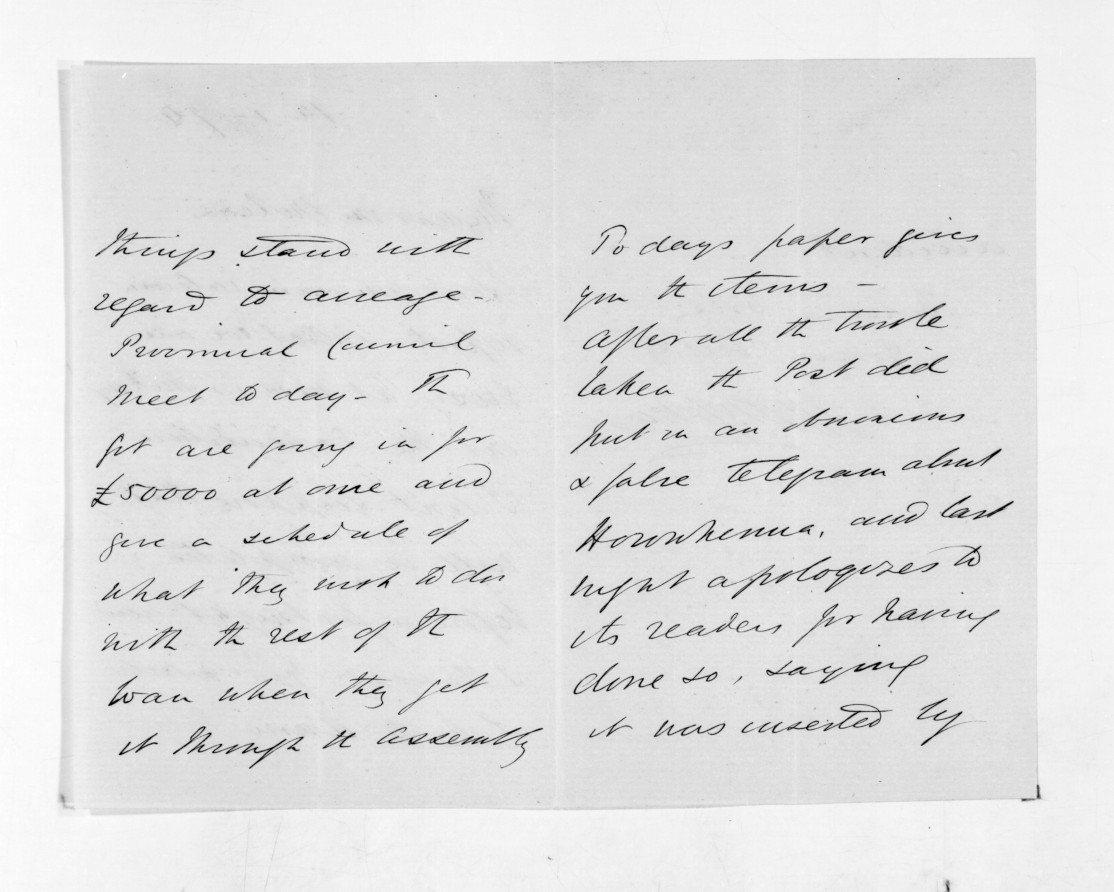 things stand with
regard to acreage -
Provincial Council
meet today - The
Govt are going in for
£50000 at once and
give a schedule of
what they wish to do
with the rest of the
loan when they get
it through the Assembly
To days paper gives
you the items -
After all the trouble
taken the Post did
put in an obnoxious
& false telegram about
Horowhenua, and last
night apologizes to
its readers for having
done so, saying
it was inserted by